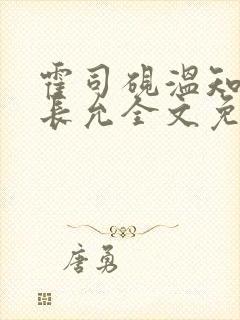 霍司砚温知
衾允全文免
唐勇